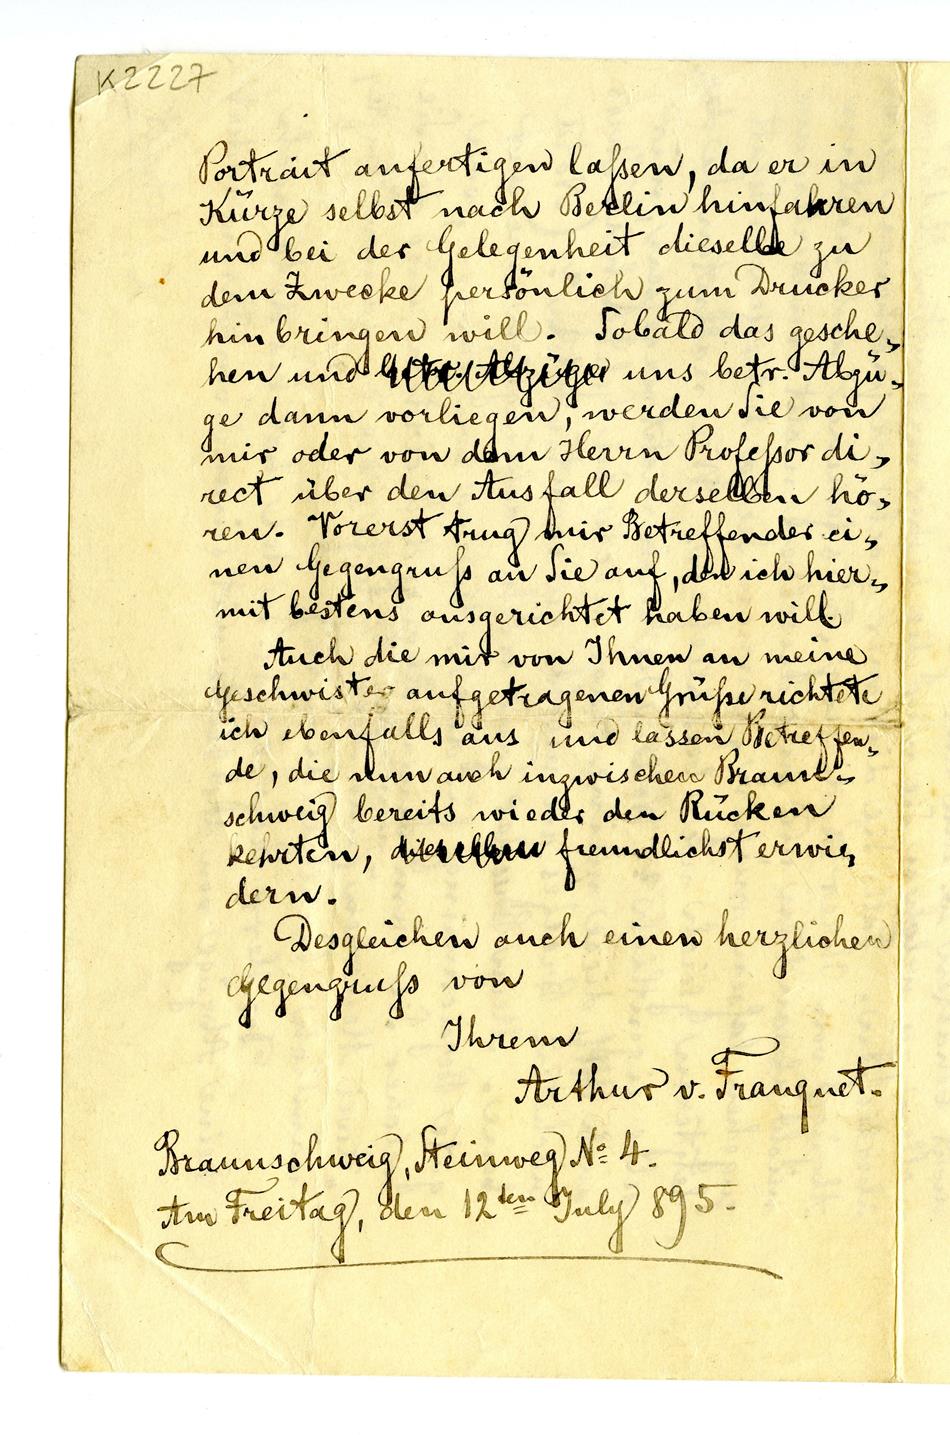 K2227
Portrait anfertigen laßen, da er in
Kürze selbst nach Berlin hinfahren
und bei der Gelegenheit dieselbe zu
dem Zwecke persönlich zum Drucker
hinbringen will. Sobald das gesche-
hen und uns betr. Abzü-
ge dann vorliegen, werden Sie von
mir oder von dem Herrn Profeßor di-
rect über den Ausfall derselben hö-
ren. Vorerst trug mir Betreffender ei-
nen Gegengruß an Sie auf, den ich hier-
mit bestens ausgerichtet haben will.
Auch die mir von Ihnen an meine
Geschwister aufgetragenen Grüße richtete
ich ebenfalls aus und lassen Betreffen-
de, die nun auch inzwischen Braun-
schweig bereits wieder den Rücken
kehrten, dieselben freundlichst erwie-
dern.
Desgleichen auch einen herzlichen
Gegengruß von
Ihrem
Arthur v. Franquet.
Braunschweig, Steinweg No 4.
Am Freitag, den 12ten July 895.